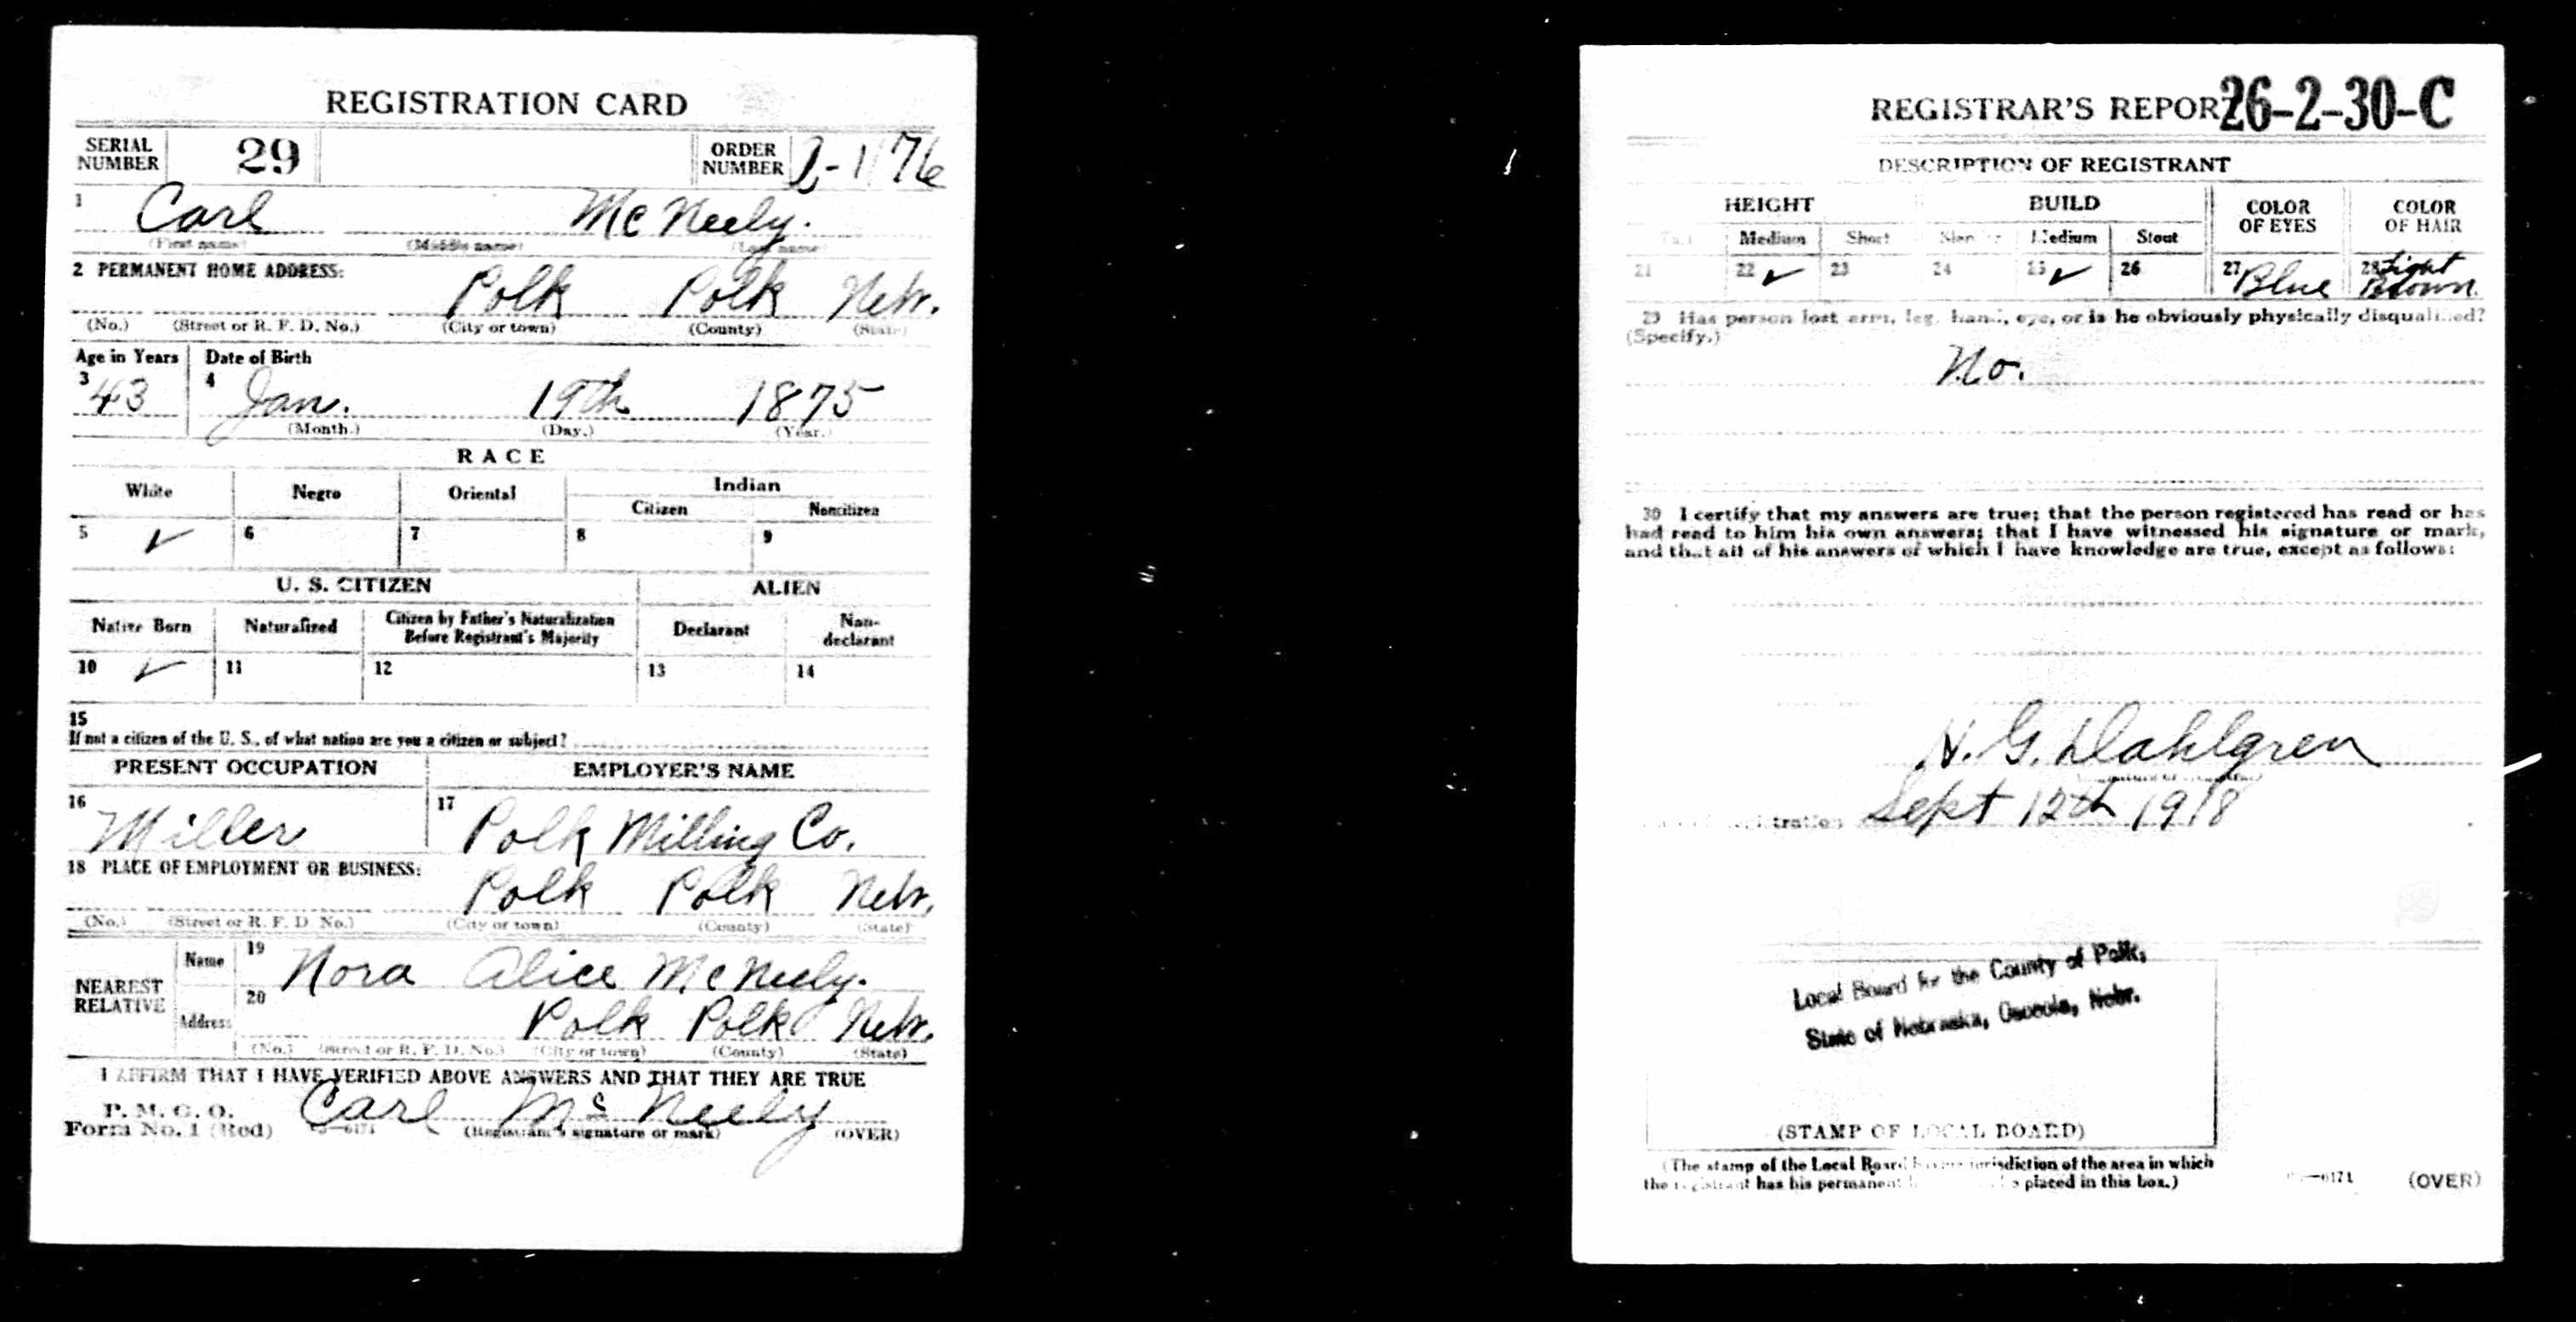 REGISTRATION CARD
SERIAL NUMBER 29 ORDER NUMBER 1176
1 Carl McNeely.
(First name) (Middle name) (Last name)
2 PERMANENT HOME ADDRESS:
Polk Polk Nebr.
(No.) (Street or R. F. D. No.) (City or town) (County) (State)
Age in Years Date of Birth
3 43 4 Jan. 19th 1875
(Month.) (Day.) (Year.)
RACE
White Negro Oriental Indian
Citizen Noncitizen
5 ✓ 6 7 8 9
U. S. CITIZEN ALIEN
Native Born Naturalized Citizen by Father's Naturalization Before Registrant's Majority Declarant Non-declarant
10 ✓ 11 12 13 14
15
If not a citizen of the U. S., of what nation are you a citizen or subject?
PRESENT OCCUPATION EMPLOYER'S NAME
16 Miller 17 Polk Milling Co.
18 PLACE OF EMPLOYMENT OR BUSINESS:
Polk Polk Nebr.
(No.) (Street or R. F. D. No.) (City or town) (County) (State)
NEAREST RELATIVE Name 19 Nora Alice McNeely.
Address 20 Polk Polk Nebr.
(No.) (Street or R. F. D. No.) (City or town) (County) (State)
I AFFIRM THAT I HAVE VERIFIED ABOVE ANSWERS AND THAT THEY ARE TRUE
P. M. G. O.
Form No. 1 (Red) Carl McNeely
(Registrant's signature or mark) (OVER)
REGISTRAR'S REPORT 26-2-30-C
DESCRIPTION OF REGISTRANT
HEIGHT BUILD COLOR OF EYES COLOR OF HAIR
Tall Medium Short Slender Medium Stout
21 22 ✓ 23 24 25 ✓ 26 27 Blue 28 Light Brown
29 Has person lost arm, leg, hand, eye, or is he obviously physically disqualified?
(Specify.)
No.
30 I certify that my answers are true; that the person registered has read or has
had read to him his own answers; that I have witnessed his signature or mark,
and that all of his answers of which I have knowledge are true, except as follows:
N. G. Dahlgren
Registration Sept 12th 1918
Local Board for the County of Polk,
State of Nebraska, Osceola, Nebr.
(STAMP OF LOCAL BOARD)
(The stamp of the Local Board having jurisdiction of the area in which
the registrant has his permanent placed in this box.)
6171 (OVER)